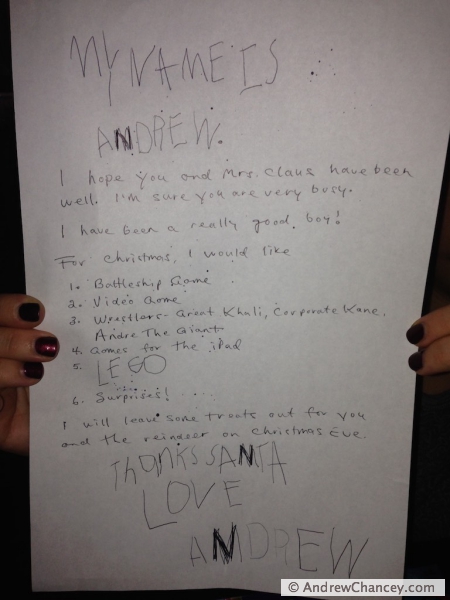 MY NAME IS
ANDREW.
I hope you and Mrs. Claus have been
well. I'm sure you are very busy.
I have been a really good boy!
For Christmas, I would like
1. Battleship Game
2. Video Game
3. Wrestlers- Great Khali, Corporate Kane,
Andre The Giant
4. Games for the iPad
5. LEGO
6. Surprises!
I will leave some treats out for you
and the reindeer on Christmas Eve.
THANKS SANTA
LOVE
ANDREW
© AndrewChancey.com